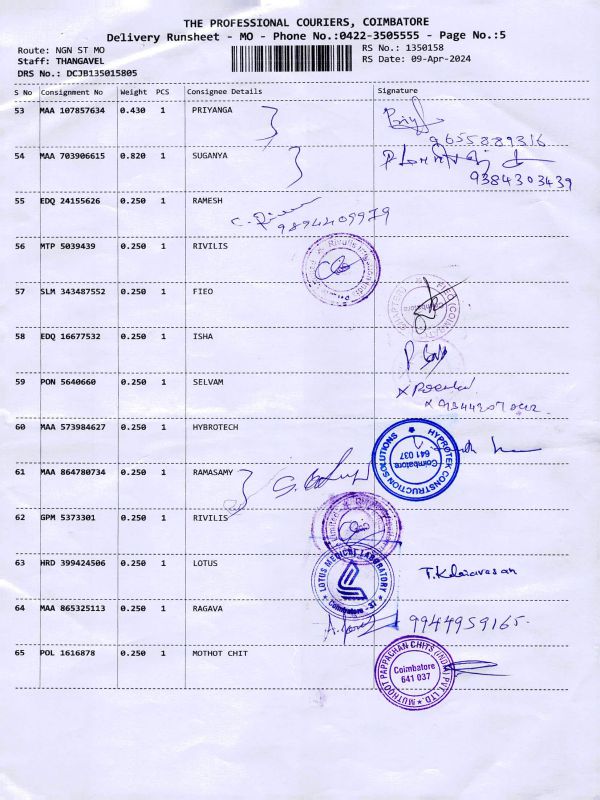 THE PROFESSIONAL COURIERS, COIMBATORE
Delivery Runsheet - MO - Phone No.:0422-3505555 - Page No.:5
Route: NGN ST MO RS No.: 1350158
Staff: THANGAVEL RS Date: 09-Apr-2024
DRS No.: DCJB135015805
S No Consignment No Weight PCS Consignee Details Signature
53 MAA 107857634 0.430 1 PRIYANGA Priya
9655889316
54 MAA 703906615 0.820 1 SUGANYA
9384303439
55 EDQ 24155626 0.250 1 RAMESH
9894409979
56 MTP 5039439 0.250 1 RIVILIS
57 SLM 343487552 0.250 1 FIEO
58 EDQ 16677532 0.250 1 ISHA
59 PON 5640660 0.250 1 SELVAM
60 MAA 573984627 0.250 1 HYBROTECH
HYPROTEK CONSTRUCTION SOLUTIONS
Coimbatore
641 037
61 MAA 864780734 0.250 1 RAMASAMY
62 GPM 5373301 0.250 1 RIVILIS
63 HRD 399424506 0.250 1 LOTUS
LOTUS MEDICAL LABORATORY
Coimbatore - 37
64 MAA 865325113 0.250 1 RAGAVA
9944959165.
65 POL 1616878 0.250 1 MOTHOT CHIT
MUTHOOT PAPPACHAN CHITS (INDIA) PVT LTD.
Coimbatore
641 037